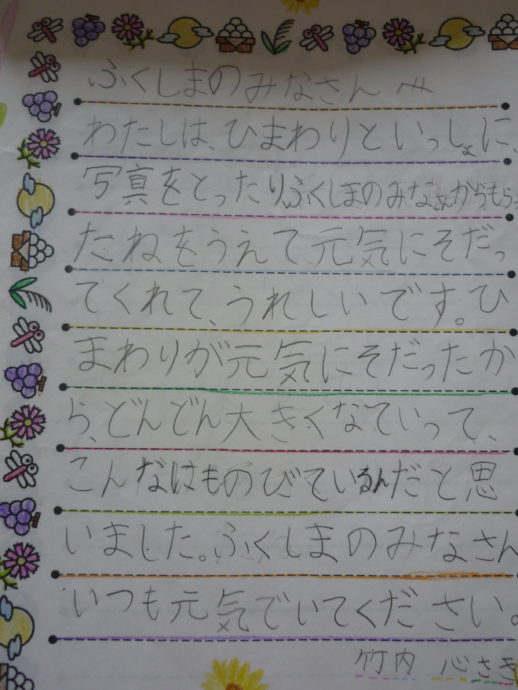 ふくしまのみなさんへ
わたしは、ひまわりといっしょに、
写真をとったり、ふくしまのみなさんからもらっ
たねをうえて元気にそだっ
てくれて、うれしいです。ひ
まわりが元気にそだったか
ら、どんどん大きくなていって、
こんなはものびているんだと思
いました。ふくしまのみなさん
いつも元気でいてください。
竹内 心さき